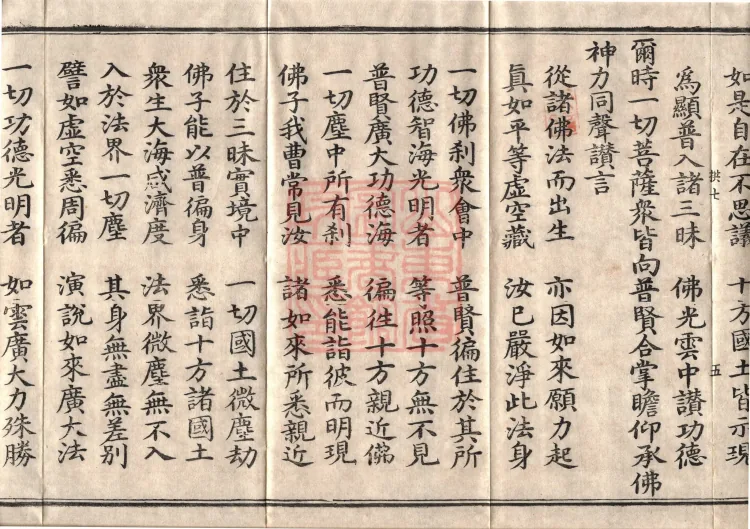 如是自在不思議　十方國土皆示現
拱七　五
為顯普入諸三昧　佛光雲中讚功德
爾時一切菩薩衆皆向普賢合掌瞻仰承佛
神力同聲讚言
從諸佛法而出生　亦因如來願力起
真如平等虛空藏　汝已嚴淨此法身
一切佛刹衆會中　普賢徧住於其所
功德智海光明者　等照十方無不見
普賢廣大功德海　徧徃十方親近佛
一切塵中所有刹　悉能詣彼而明現
佛子我曹常見汝　諸如來所悉親近
住於三昧實境中　一切國土微塵劫
佛子能以普徧身　悉詣十方諸國土
衆生大海咸濟度　法界微塵無不入
入於法界一切塵　其身無盡無差別
譬如虛空悉周徧　演說如來廣大法
一切功德光明者　如雲廣大力殊勝